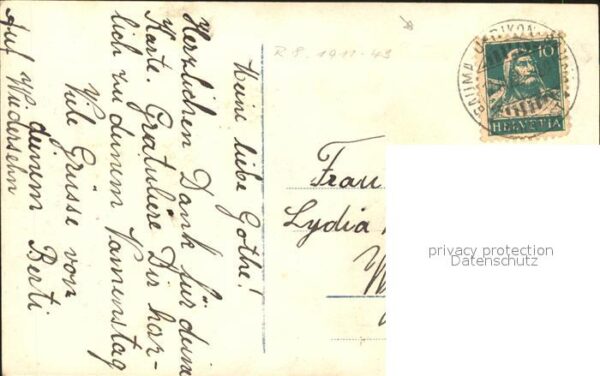 Meine liebe Gothe!
Herzlichen Dank für deine
Karte. Gratuliere Dir herz-
lich zu deinem Namenstag
Viele Grüsse von
deinem Berti
Auf Wiedersehn
R 8. 1911-43
BAUMA
10
HELVETIA
Frau
Lydia
W
privacy protection
Datenschutz